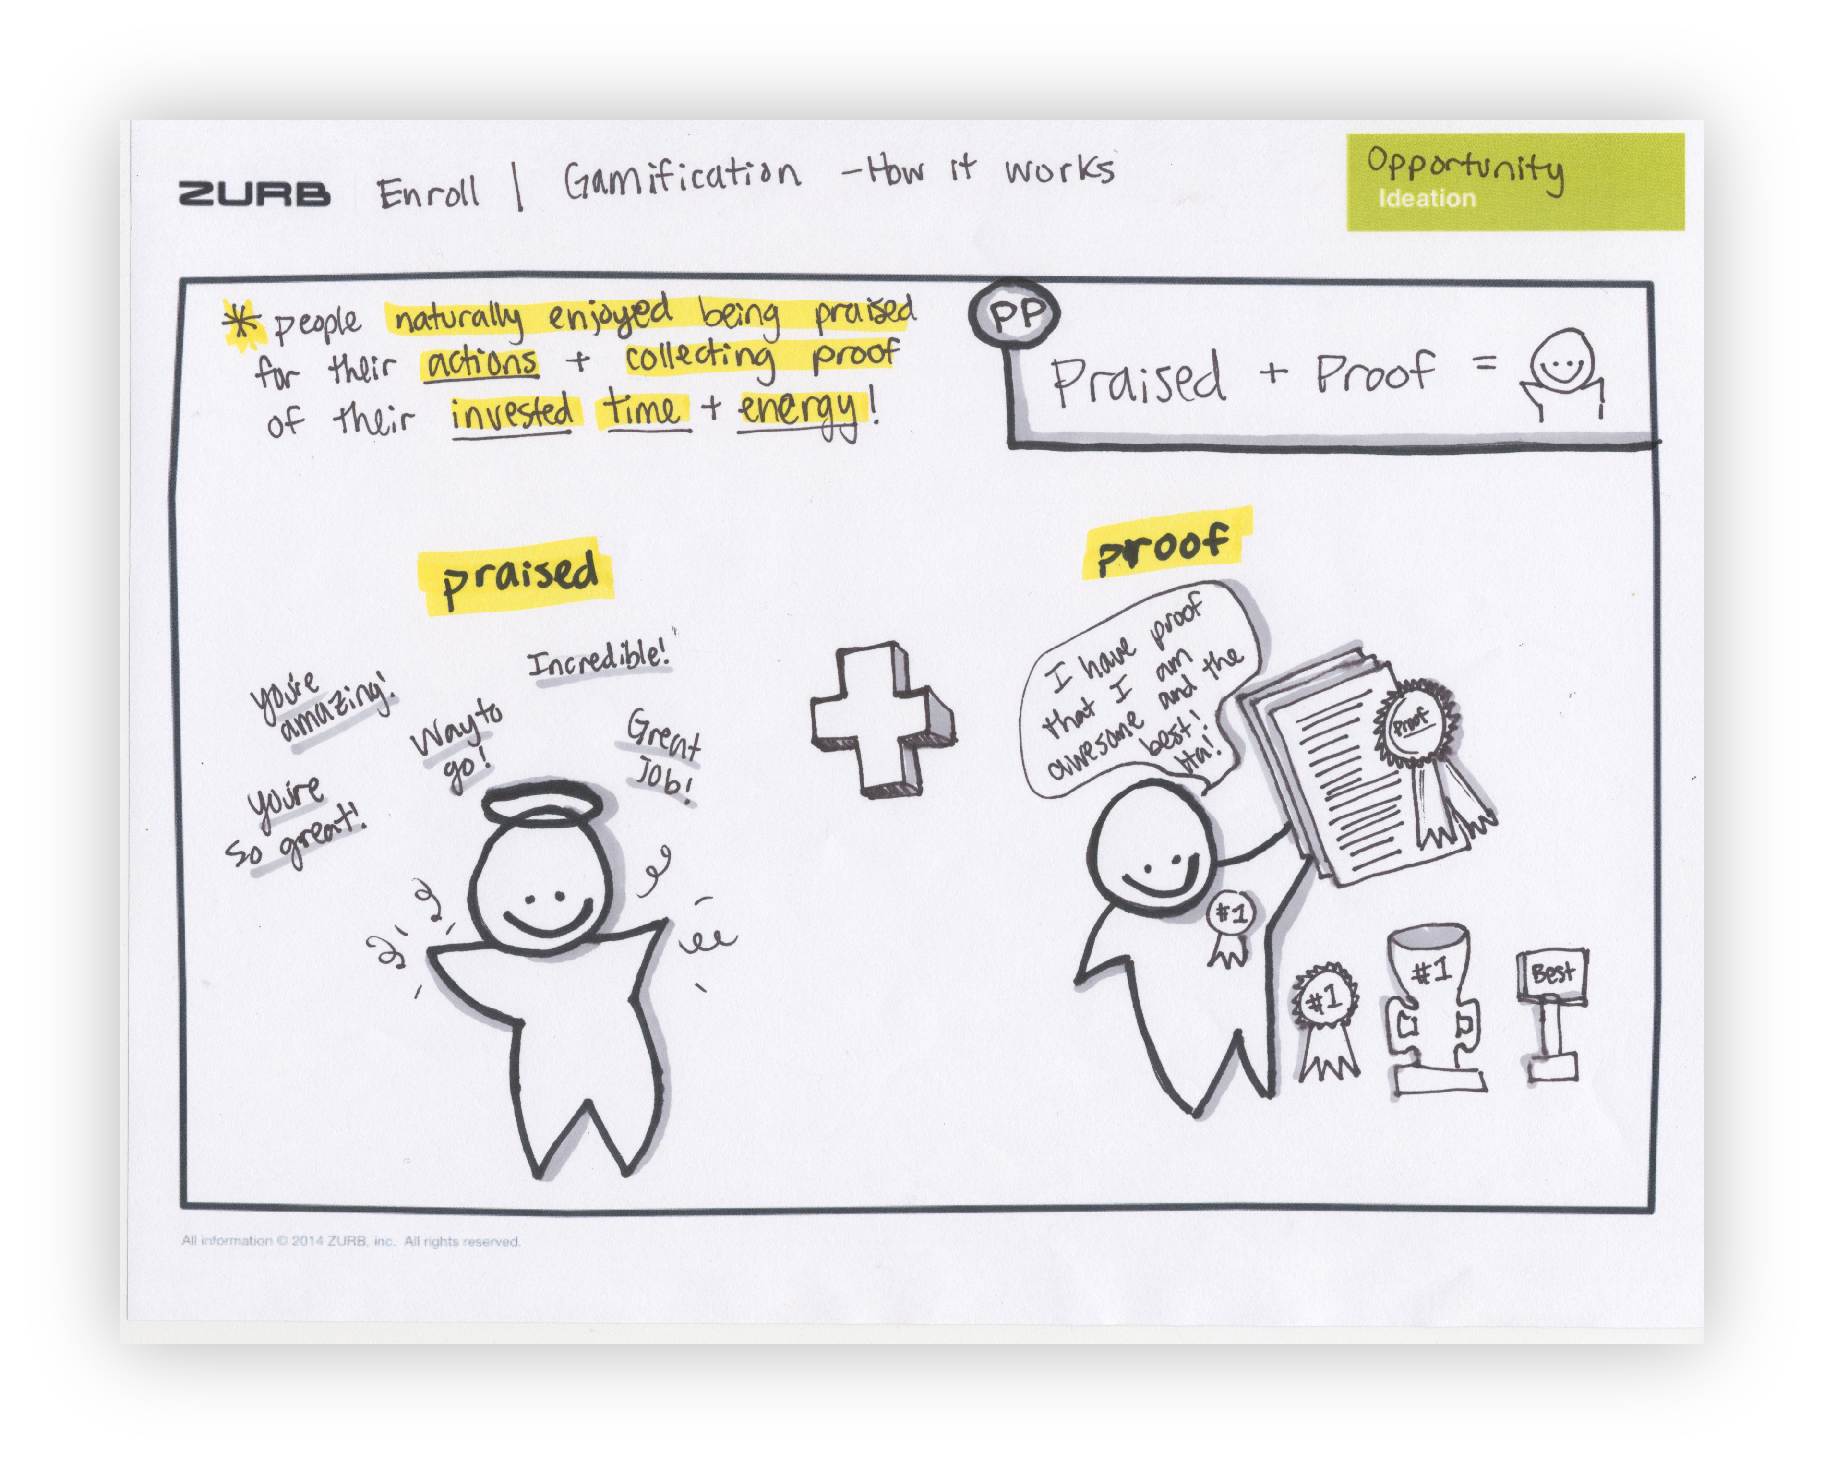 ZURB Enroll | Gamification - How it works
Opportunity
Ideation
* people naturally enjoyed being praised
for their actions + collecting proof
of their invested time + energy!
PP
Praised + Proof =
praised
you're
amazing!
Way to
go!
Incredible!
Great
JOb!
you're
so great!
proof
I have proof
that I am
awesome and the
best!
hta!
Proof
#1
#1
#1
Best
All information © 2014 ZURB, inc. All rights reserved.